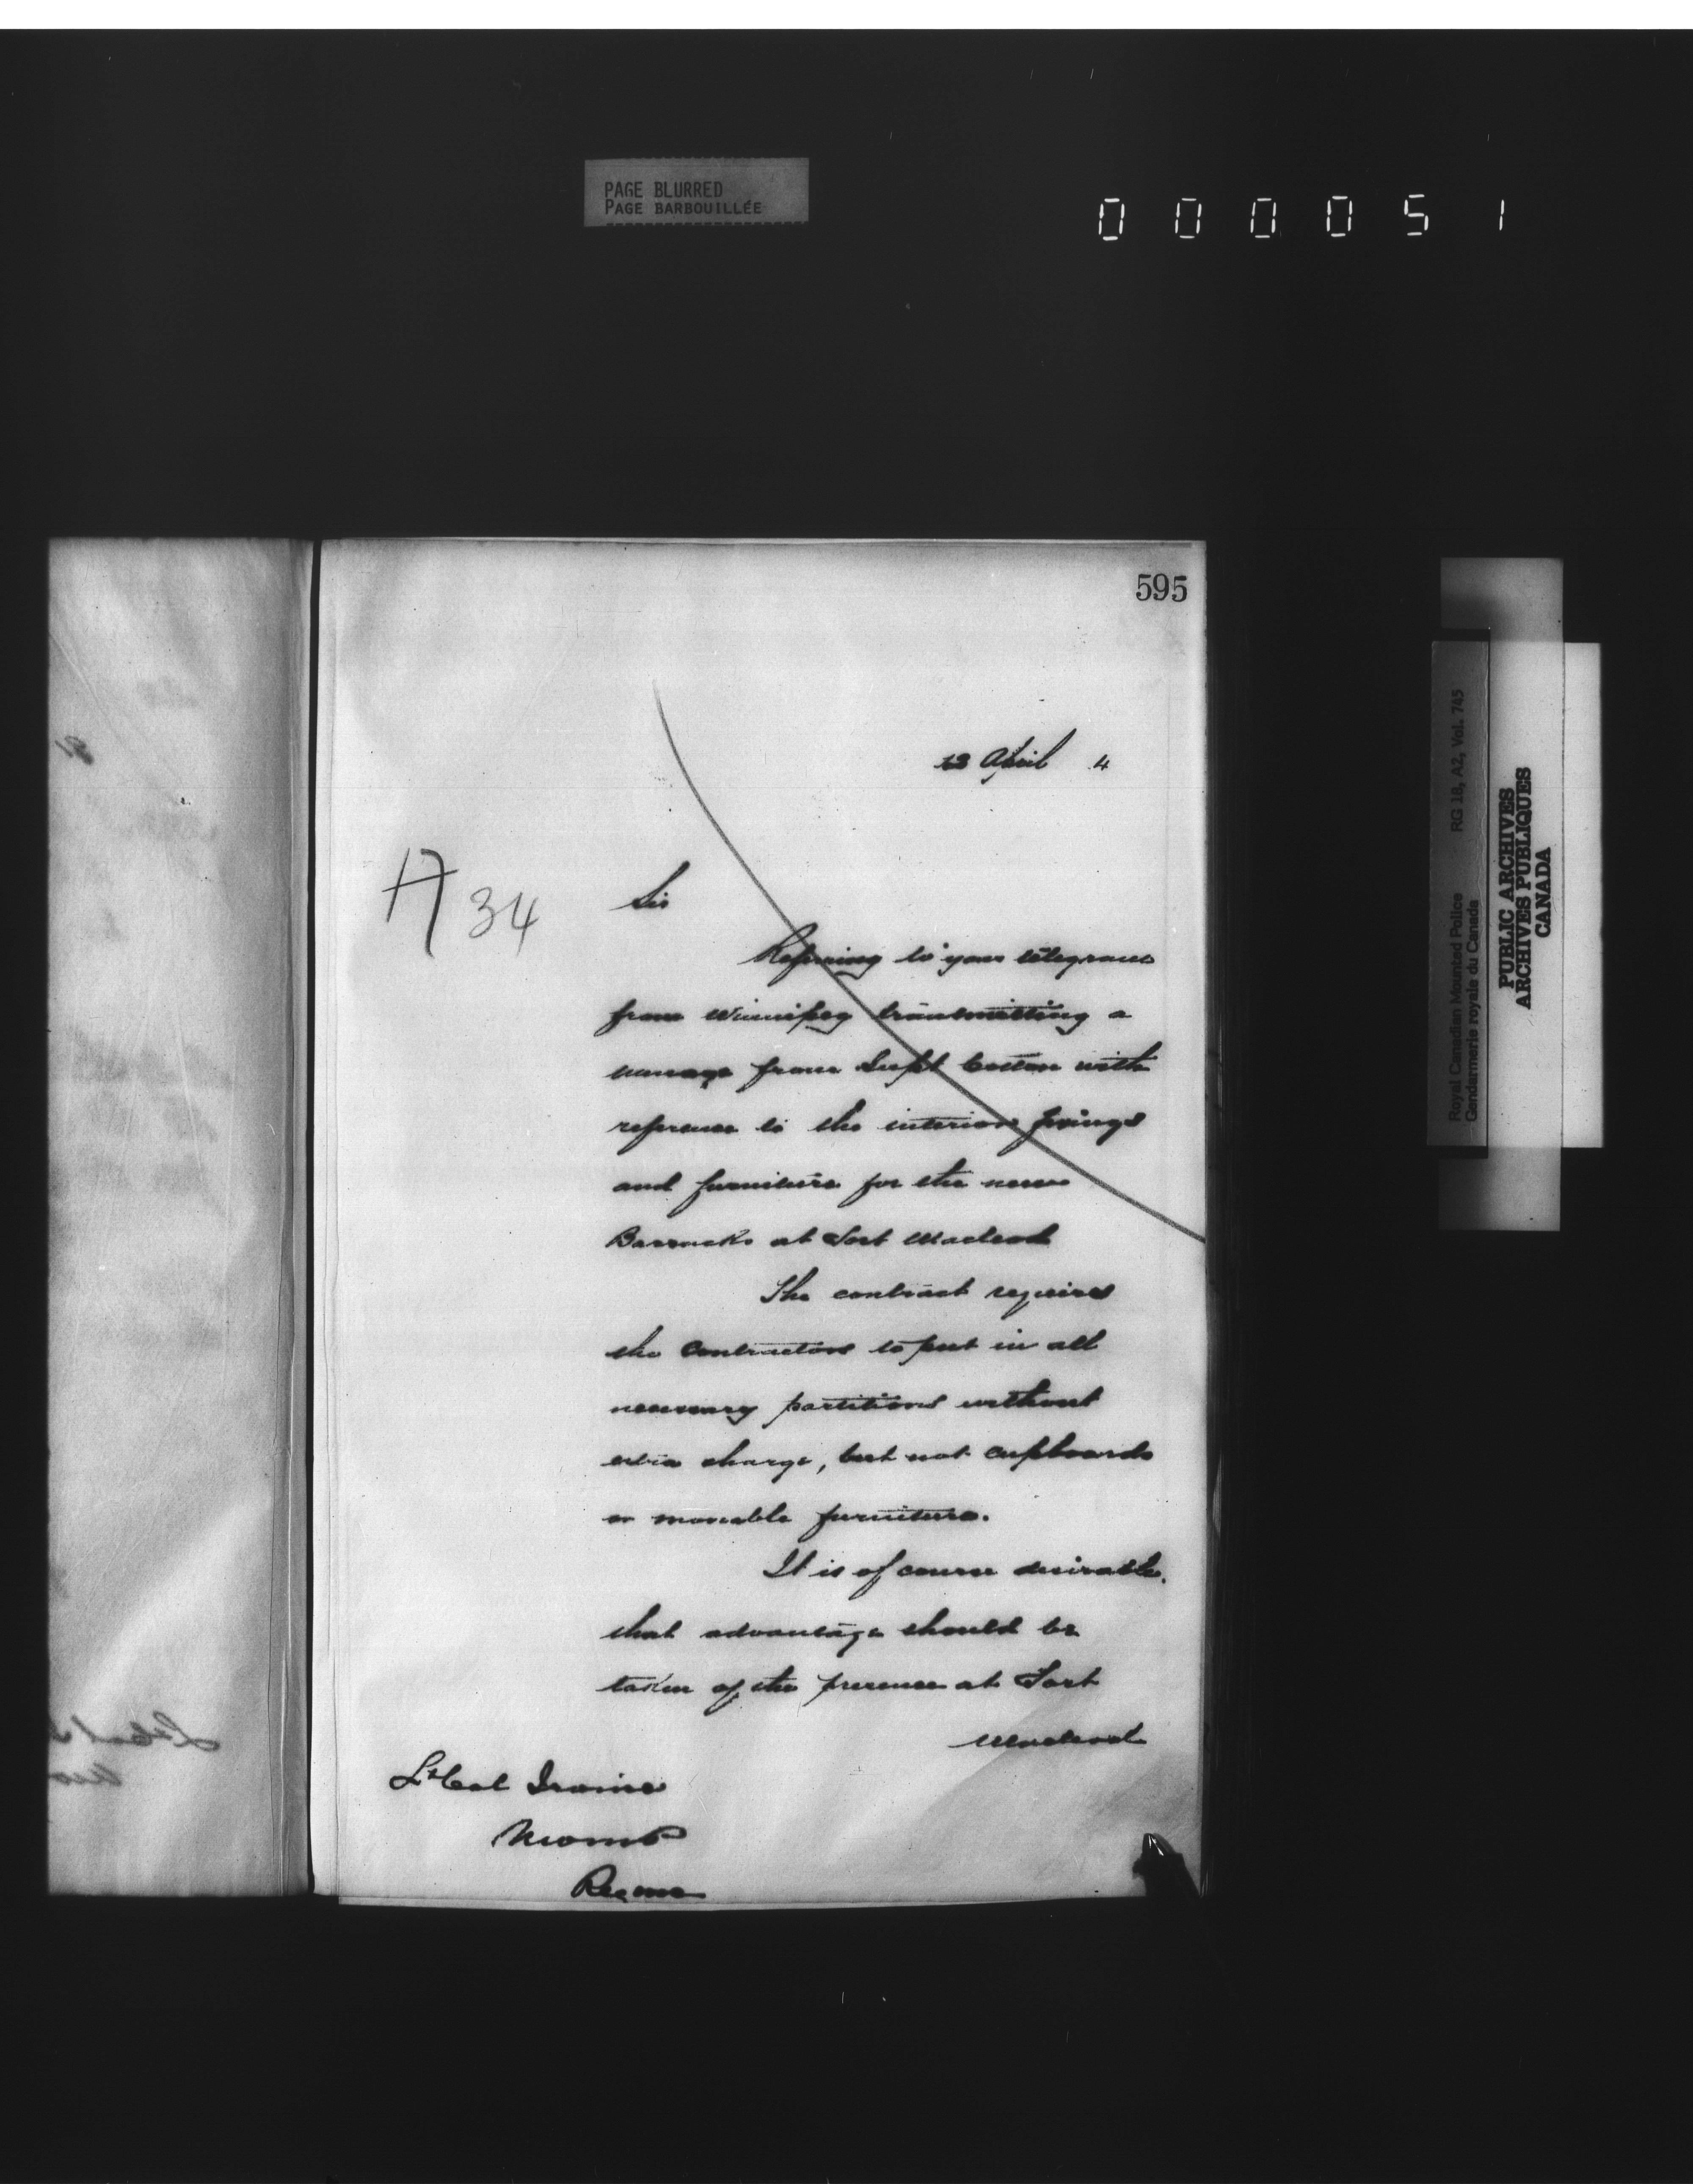 PAGE BLURRED
PAGE BARBOUILLÉE
000051
595
12 April 4
A 34
Sir
Referring to your telegram
from Winnipeg transmitting a
message from Supt Cotton with
reference to the interior fixings
and furniture for the new
Barracks at Fort Macleod
The contract requires
the Contractors to put in all
necessary partitions without
extra charge, but not cupboards
or moveable furniture.
It is of course desirable
that advantage should be
taken of the presence at Fort
Macleod
Lt Col Irvine
NWMP
Regina
Royal Canadian Mounted Police RG 18, A2, Vol. 745
Gendarmerie royale du Canada
PUBLIC ARCHIVES
ARCHIVES PUBLIQUES
CANADA